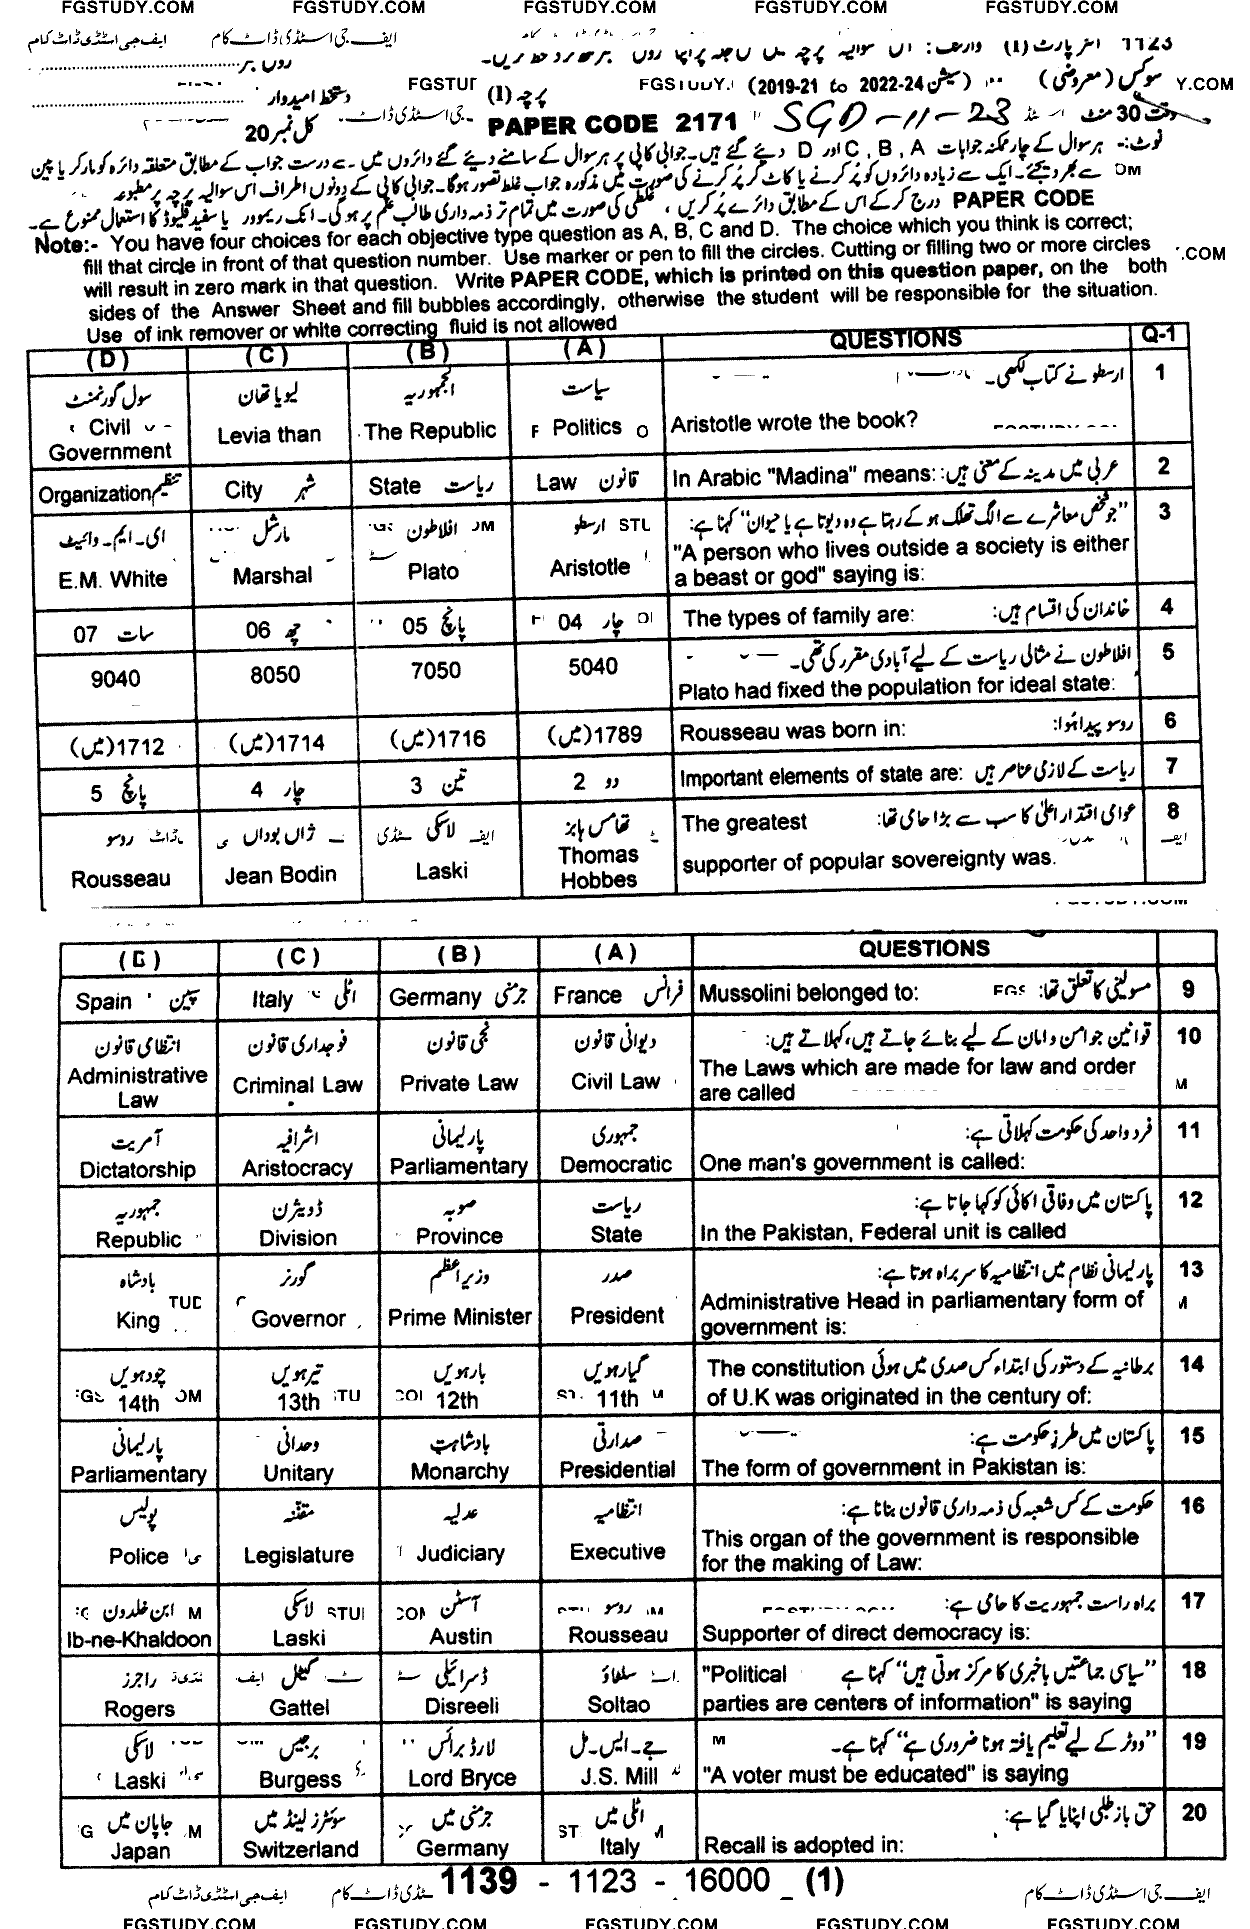 FGSTUDY.COM FGSTUDY.COM FGSTUDY.COM FGSTUDY.COM FGSTUDY.COM
ایف جی اسٹڈی ڈاٹ کام ایف جی اسٹڈی ڈاٹ کام
1123 انٹر پارٹ (1)
سوکس (معروضی) (سیشن 2022-24 to 2019-21) پرچہ (I) دستخط امیدوار
وقت 30 منٹ SGD-11-23 PAPER CODE 2171 کل نمبر 20
نوٹ:- ہر سوال کے چار ممکنہ جوابات A , B , C اور D دیئے گئے ہیں۔ جوابی کاپی پر ہر سوال کے سامنے دیئے گئے دائروں میں سے درست جواب کے مطابق متعلقہ دائرہ کو مارکر یا پین
سے بھر دیجئے۔ ایک سے زیادہ دائروں کو پُر کرنے یا کاٹ کر پُر کرنے کی صورت میں مذکورہ جواب غلط تصور ہوگا۔ جوابی کاپی کے دونوں اطراف اس سوالیہ پرچہ پر مطبوعہ
PAPER CODE درج کر کے اس کے مطابق دائرے پُر کریں، غلطی کی صورت میں تمام تر ذمہ داری طالب علم پر ہوگی۔ انک ریموور یا سفید فلیوڈ کا استعمال ممنوع ہے۔
Note:- You have four choices for each objective type question as A, B, C and D. The choice which you think is correct;
fill that circle in front of that question number. Use marker or pen to fill the circles. Cutting or filling two or more circles
will result in zero mark in that question. Write PAPER CODE, which is printed on this question paper, on the both
sides of the Answer Sheet and fill bubbles accordingly, otherwise the student will be responsible for the situation.
Use of ink remover or white correcting fluid is not allowed
(D) (C) (B) (A) QUESTIONS Q-1
سول گورنمنٹ لیویا تھان الجمہوریہ سیاست ارسطو نے کتاب لکھی۔ 1
Civil Government Levia than The Republic Politics Aristotle wrote the book?
Organization تنظیم City شہر State ریاست Law قانون In Arabic "Madina" means: عربی میں مدینہ کے معنی ہیں: 2
ای۔ایم۔وائیٹ مارشل افلاطون ارسطو "جو شخص معاشرے سے الگ تھلک ہو کے رہتا ہے وہ دیوتا ہے یا حیوان" کہنا ہے: 3
E.M. White Marshal Plato Aristotle "A person who lives outside a society is either
a beast or god" saying is:
07 سات 06 چھ 05 پانچ 04 چار The types of family are: خاندان کی اقسام ہیں: 4
9040 8050 7050 5040 افلاطون نے مثالی ریاست کے لیے آبادی مقرر کی تھی۔ 5
Plato had fixed the population for ideal state:
1712(میں) 1714(میں) 1716(میں) 1789(میں) Rousseau was born in: روسو پیدا ہُوا: 6
5 پانچ 4 چار 3 تین 2 دو Important elements of state are: ریاست کے لازمی عناصر ہیں 7
روسو ژاں بوداں لاسکی تھامس ہابز The greatest عوامی اقتدار اعلیٰ کا سب سے بڑا حامی تھا: 8
Rousseau Jean Bodin Laski Thomas Hobbes supporter of popular sovereignty was.
(C) (B) (A) QUESTIONS
Spain سپین Italy اٹلی Germany جرمنی France فرانس Mussolini belonged to: مسولینی کا تعلق تھا: 9
انتظامی قانون فوجداری قانون نجی قانون دیوانی قانون قوانین جو امن و امان کے لیے بنائے جاتے ہیں، کہلاتے ہیں: 10
Administrative Law Criminal Law Private Law Civil Law The Laws which are made for law and order
are called
آمریت اشرافیہ پارلیمانی جمہوری فرد واحد کی حکومت کہلاتی ہے: 11
Dictatorship Aristocracy Parliamentary Democratic One man's government is called:
جمہوریہ ڈویژن صوبہ ریاست پاکستان میں وفاقی اکائی کو کہا جاتا ہے: 12
Republic Division Province State In the Pakistan, Federal unit is called
بادشاہ گورنر وزیراعظم صدر پارلیمانی نظام میں انتظامیہ کا سربراہ ہوتا ہے: 13
King Governor Prime Minister President Administrative Head in parliamentary form of
government is:
چودہویں تیرہویں بارہویں گیارہویں The constitution برطانیہ کے دستور کی ابتداء کس صدی میں ہوئی 14
14th 13th 12th 11th of U.K was originated in the century of:
پارلیمانی وحدانی بادشاہت صدارتی پاکستان میں طرز حکومت ہے: 15
Parliamentary Unitary Monarchy Presidential The form of government in Pakistan is:
پولیس مقننہ عدلیہ انتظامیہ حکومت کے کس شعبہ کی ذمہ داری قانون بنانا ہے: 16
Police Legislature Judiciary Executive This organ of the government is responsible
for the making of Law:
ابن خلدون لاسکی آسٹن روسو براہ راست جمہوریت کا حامی ہے: 17
Ib-ne-Khaldoon Laski Austin Rousseau Supporter of direct democracy is:
راجرز گیٹل ڈسرائیلی سلٹاؤ "Political "سیاسی جماعتیں باخبری کا مرکز ہوتی ہیں" کہنا ہے 18
Rogers Gattel Disreeli Soltao parties are centers of information" is saying
لاسکی برجیس لارڈ برائس جے۔ایس۔مل "ووٹر کے لیے تعلیم یافتہ ہونا ضروری ہے" کہنا ہے۔ 19
Laski Burgess Lord Bryce J.S. Mill "A voter must be educated" is saying
جاپان میں سوئٹزر لینڈ میں جرمنی میں اٹلی میں حق باز طلبی اپنایا گیا ہے: 20
Japan Switzerland Germany Italy Recall is adopted in:
1139 - 1123 - 16000 (1)
ایف جی اسٹڈی ڈاٹ کام ایف جی اسٹڈی ڈاٹ کام ایف جی اسٹڈی ڈاٹ کام
FGSTUDY.COM FGSTUDY.COM FGSTUDY.COM FGSTUDY.COM FGSTUDY.COM